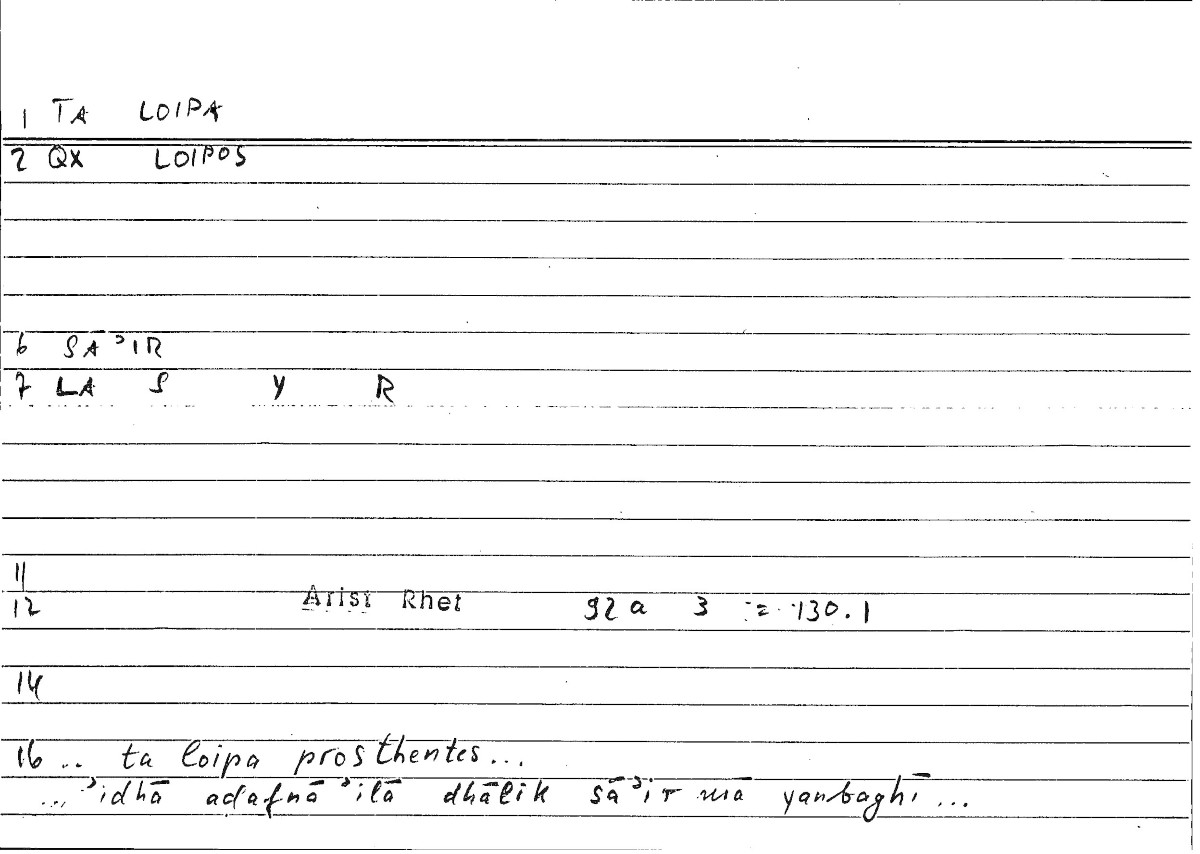 1 TA LOIPA
2 QX LOIPOS
6 SĀʾIR
7 LA S Y R
11
12 Arist Rhet 92a 3 = 130.1
14
16 .. ta loipa prosthentes...
...ʾidhā adafnā ʾilā dhālik sāʾir mā yanbaghī...